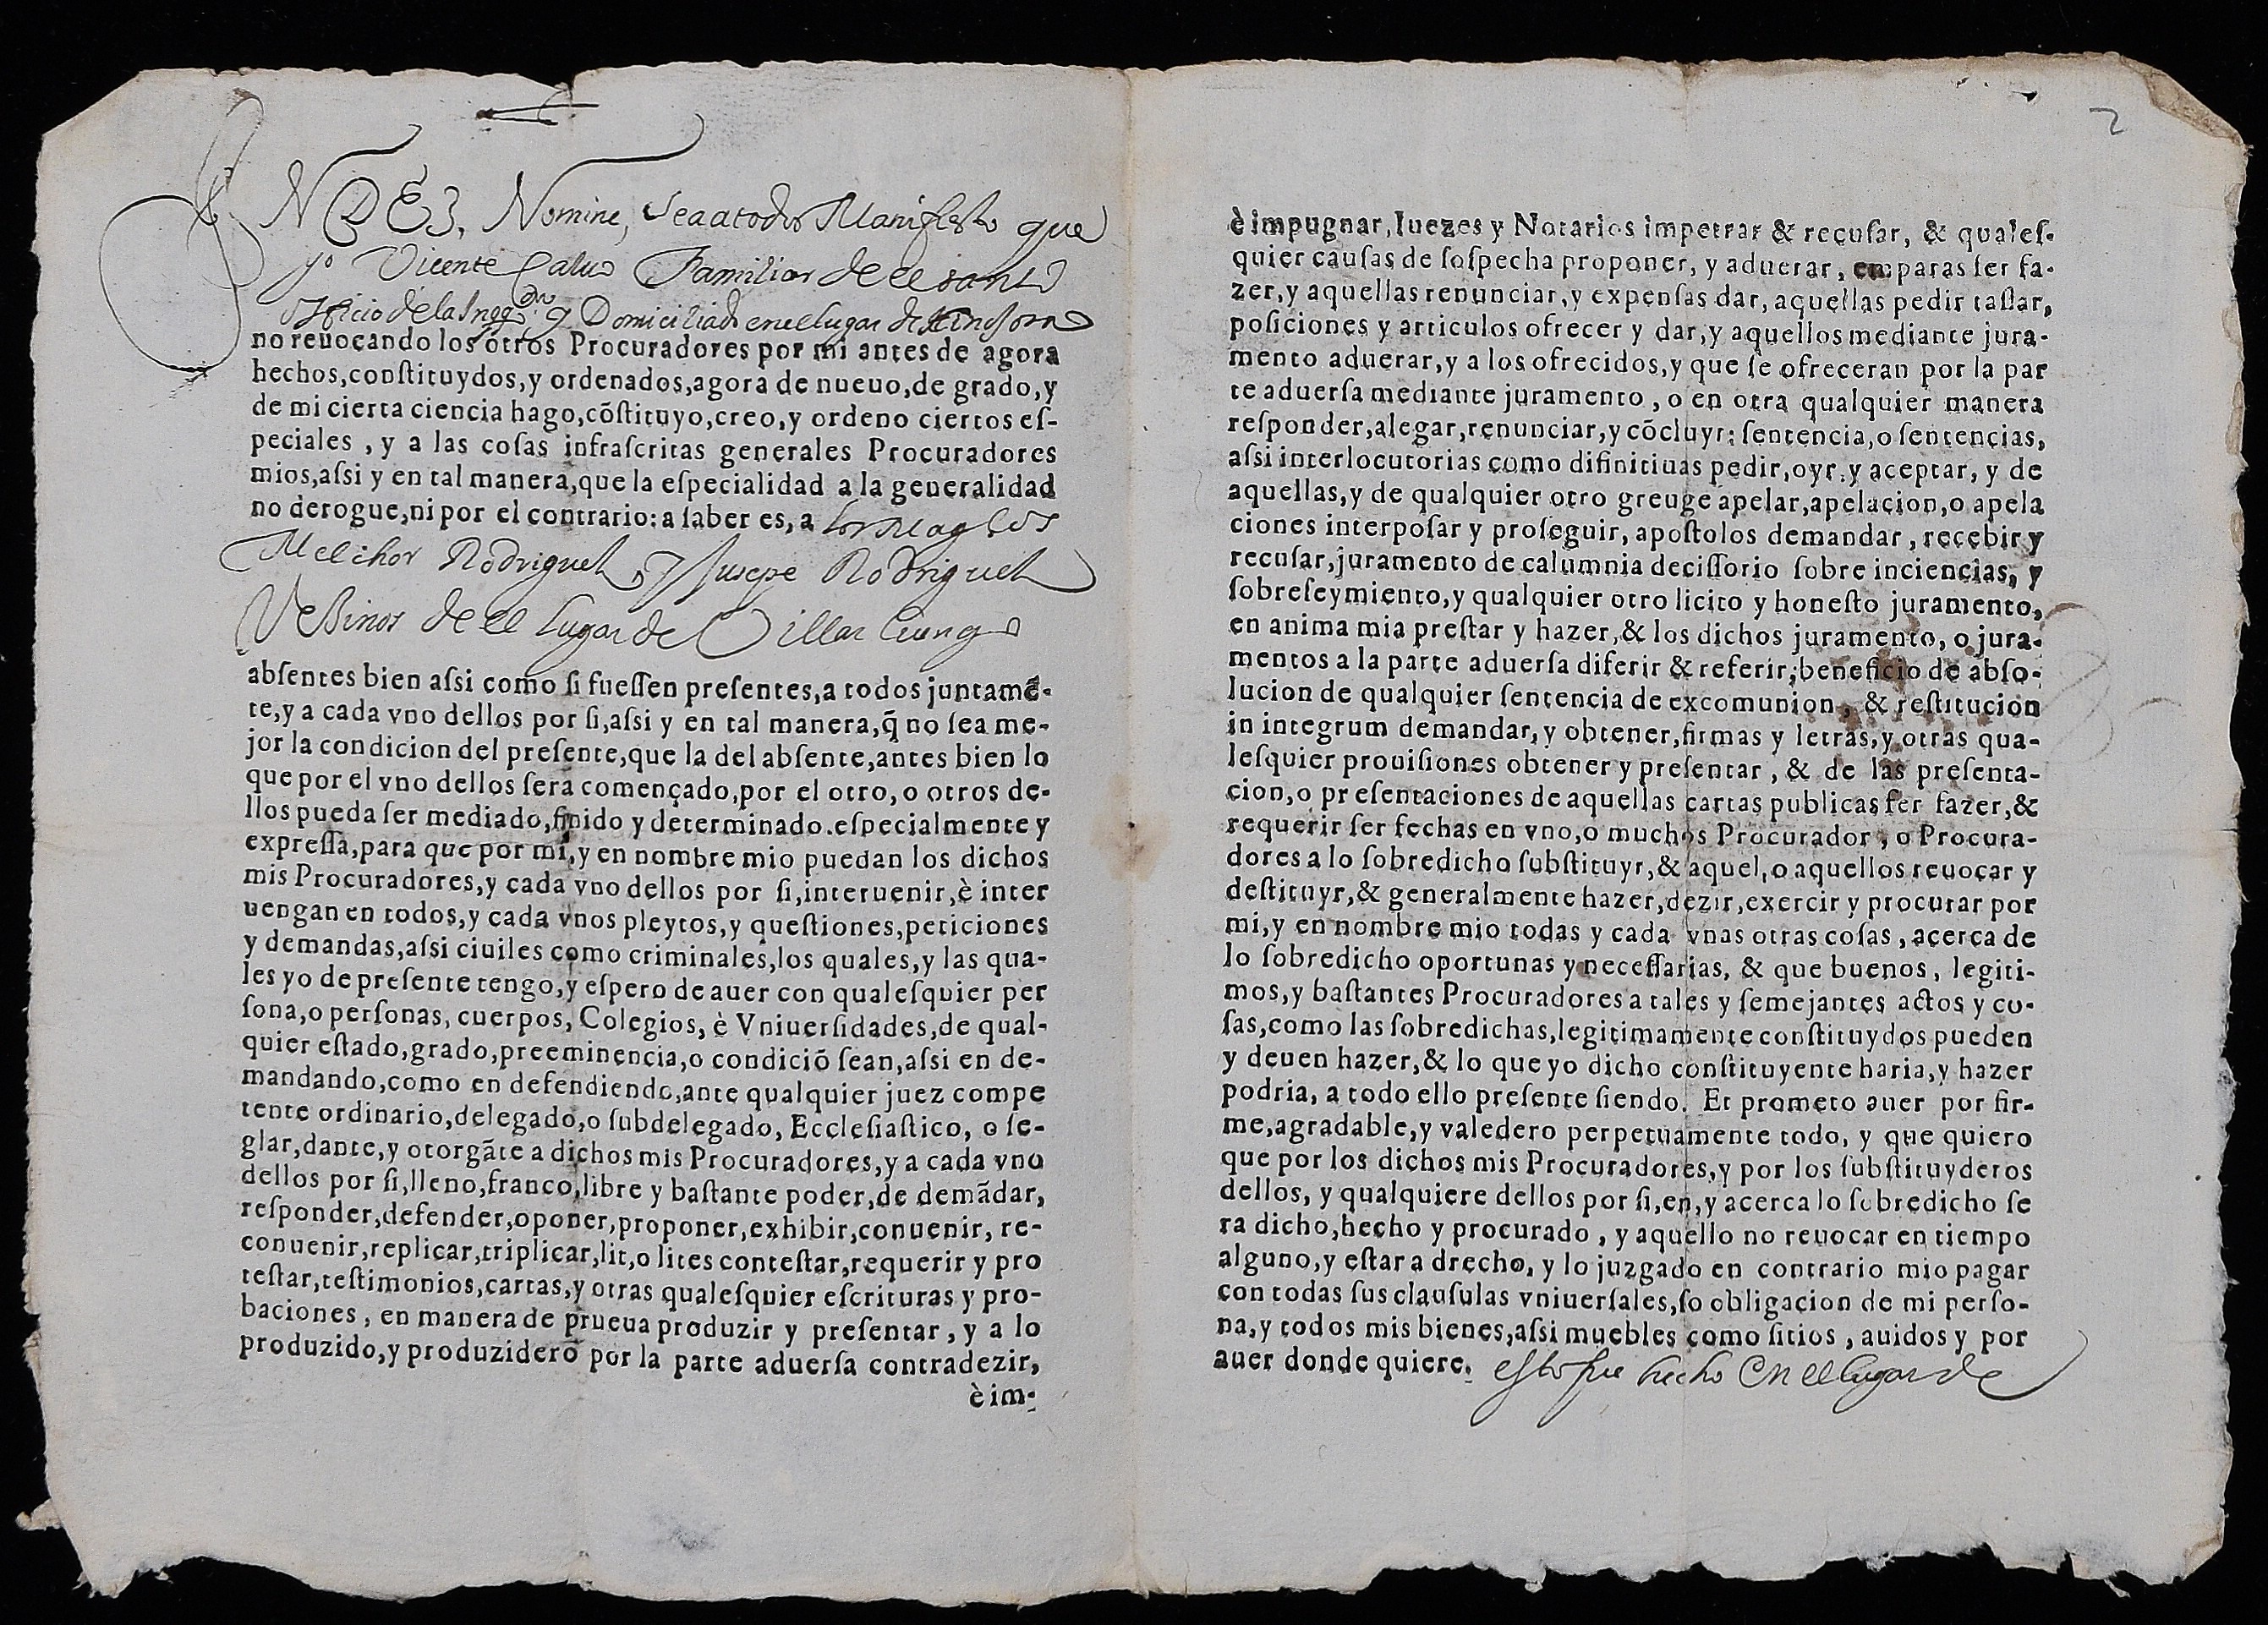 IN DEI, Nomine, Sea a todos Manifiesto que
yo Vicente Caluo Familiar de el santo
Officio de la Inqq.on y Domiciliado en el lugar de
no reuocando los otros Procuradores por mi antes de agora
hechos,conſtituydos,y ordenados,agora de nueuo,de grado,y
de mi cierta ciencia hago,cõſtituyo,creo,y ordeno ciertos eſ-
peciales , y a las coſas infraſcritas generales Procuradores
mios,aſsi y en tal manera,que la eſpecialidad a la generalidad
no derogue,ni por el contrario: a ſaber es, a los Mag.cos
Melchor Rodriguez, y Jusepe Rodriguez
Vezinos de el Lugar de Villar Luengo
abſentes bien aſsi como ſi fueſſen preſentes,a todos juntamẽ-
te,y a cada vno dellos por ſi,aſsi y en tal manera,q̃ no ſea me-
jor la condicion del preſente,que la del abſente,antes bien lo
que por el vno dellos ſera començado,por el otro,o otros de-
llos pueda ſer mediado,finido y determinado.eſpecialmente y
expreſſa,para que por mi,y en nombre mio puedan los dichos
mis Procuradores,y cada vno dellos por ſi,interuenir,è inter
uengan en todos,y cada vnos pleytos,y queſtiones,peticiones
y demandas,aſsi ciuiles como criminales,los quales,y las qua-
les yo de preſente tengo,y eſpero de auer con qualeſquier per
ſona,o perſonas, cuerpos, Colegios, è Vniuerſidades,de qual-
quier eſtado,grado,preeminencia,o condiciõ ſean,aſsi en de-
mandando,como en defendiendo,ante qualquier juez compe
tente ordinario,delegado,o ſubdelegado, Eccleſiaſtico, o ſe-
glar,dante,y otorgãte a dichos mis Procuradores,y a cada vno
dellos por ſi,lleno,franco,libre y baſtante poder,de demãdar,
reſponder,defender,oponer,proponer,exhibir,conuenir, re-
conuenir,replicar,triplicar,lit,o lites conteſtar,requerir y pro
teſtar,teſtimonios,cartas,y otras qualeſquier eſcrituras y pro-
baciones , en manera de prueua produzir y preſentar, y a lo
produzido,y produzidero por la parte aduerſa contradezir,
è im-
2
è impugnar, Iuezes y Notarios impetrar & recuſar, & qualeſ-
quier cauſas de ſoſpecha proponer, y aduerar, emparas fer fa-
zer,y aquellas renunciar,y expenſas dar, aquellas pedir taſſar,
poſiciones y articulos ofrecer y dar,y aquellos mediante jura-
mento aduerar,y a los ofrecidos,y que ſe ofreceran por la par
te aduerſa mediante juramento , o en otra qualquier manera
reſponder,alegar,renunciar,y cõcluyr: ſentencia,o ſentencias,
aſsi interlocutorias como difinitiuas pedir,oyr,y aceptar, y de
aquellas,y de qualquier otro greuge apelar,apelacion,o apela
ciones interpoſar y proſeguir, apoſtolos demandar , recebir y
recuſar,juramento de calumnia deciſſorio ſobre inciencias, y
ſobreſeymiento,y qualquier otro licito y honeſto juramento,
en anima mia preſtar y hazer,& los dichos juramento, o jura-
mentos a la parte aduerſa diferir & referir;beneficio de abſo-
lucion de qualquier ſentencia de excomunion , & reſtitucion
in integrum demandar, y obtener,firmas y letras,y otras qua-
leſquier prouiſiones obtener y preſentar , & de las preſenta-
cion,o preſentaciones de aquellas cartas publicas fer fazer,&
requerir ſer fechas en vno,o muchos Procurador , o Procura-
dores a lo ſobredicho ſubſtituyr,& aquel,o aquellos reuocar y
deſtituyr,& generalmente hazer,dezir,exercir y procurar por
mi,y en nombre mio todas y cada vnas otras coſas, acerca de
lo ſobredicho oportunas y neceſſarias, & que buenos, legiti-
mos,y baſtantes Procuradores a tales y ſemejantes actos y co-
ſas,como las ſobredichas,legitimamente conſtituydos pueden
y deuen hazer,& lo que yo dicho conſtituyente haria,y hazer
podria, a todo ello preſente ſiendo. Et prometo auer por fir-
me,agradable,y valedero perpetuamente todo, y que quiero
que por los dichos mis Procuradores,y por los ſubſtituyderos
dellos, y qualquiere dellos por ſi,en,y acerca lo ſobredicho ſe
ra dicho,hecho y procurado , y aquello no reuocar en tiempo
alguno,y eſtar a drecho, y lo juzgado en contrario mio pagar
con todas ſus clauſulas vniuerſales,ſo obligacion de mi perſo-
na,y todos mis bienes,aſsi muebles como ſitios , auidos y por
auer donde quiere. esto fue hecho en el lugar de